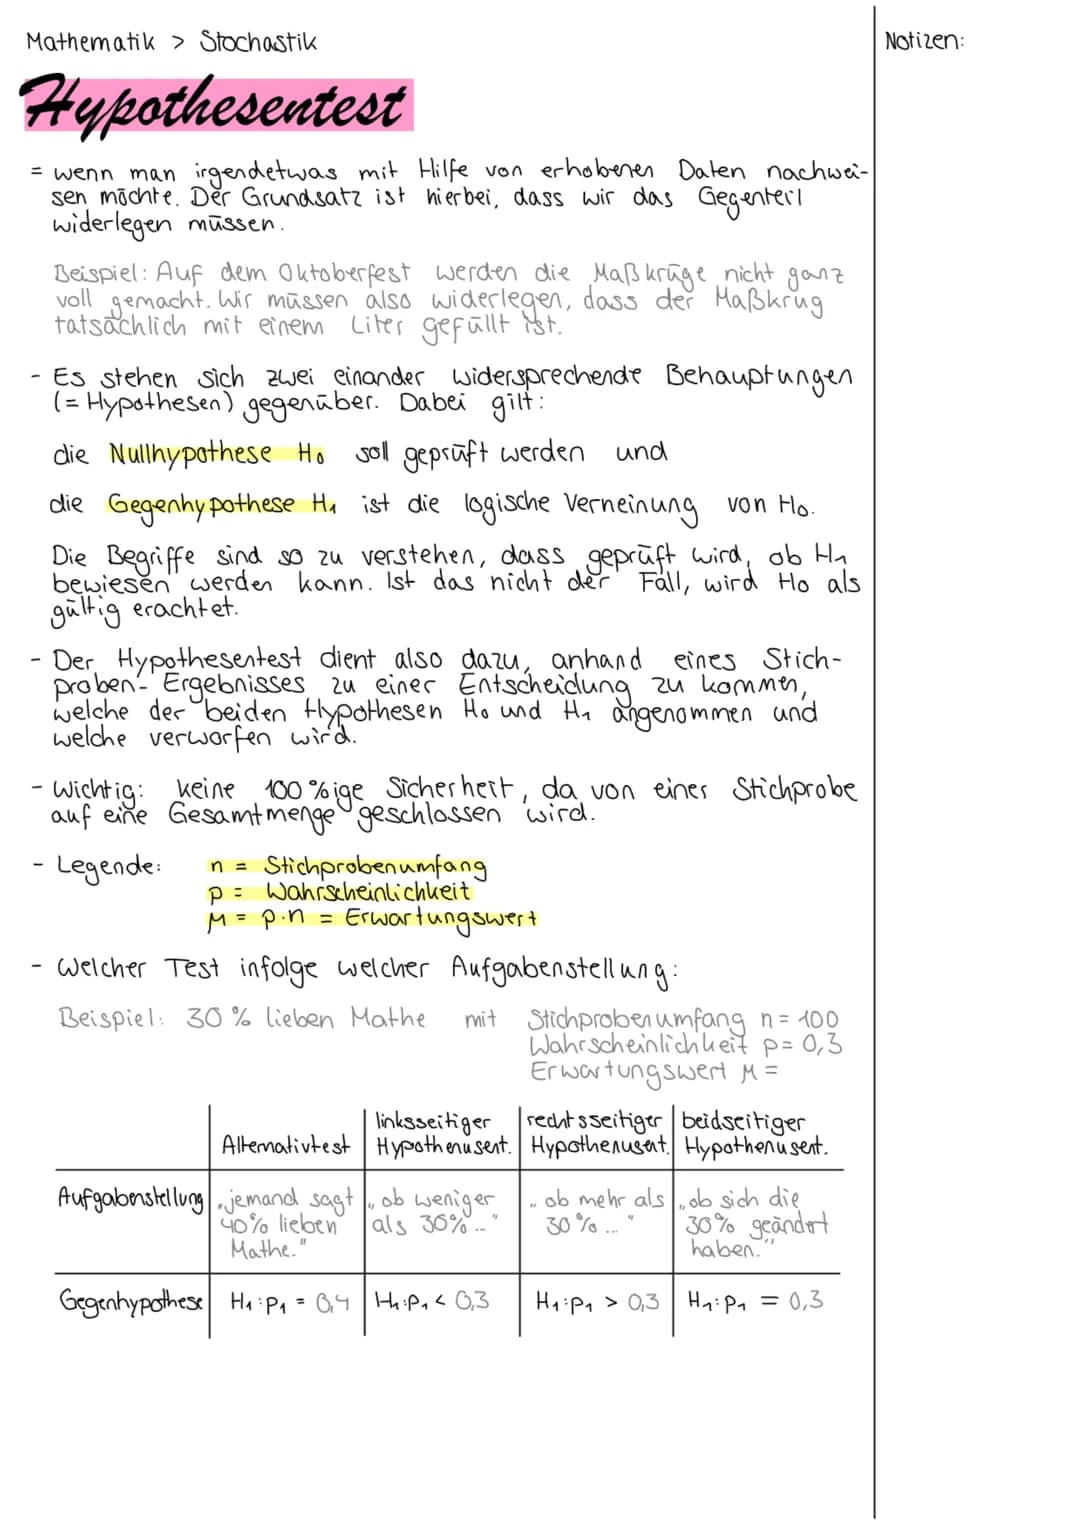 Mathematik > Stochastik
Notizen:
Hypothesentest
= wenn man irgendetwas mit Hilfe von erhobenen Daten nachwei-
sen möchte. Der Grundsatz ist hierbei, dass wir das Gegenteil
widerlegen müssen.
Beispiel: Auf dem Oktoberfest werden die Maßkrüge nicht ganz
voll gemacht. Wir müssen also widerlegen, dass der Maßkrug
tatsächlich mit einem Liter gefüllt ist.
- Es stehen sich zwei einander widersprechende Behauptungen
(= Hypothesen) gegenüber. Dabei gilt:
die Nullhypothese H₀ soll geprüft werden und
die Gegenhypothese H₁ ist die logische Verneinung von H₀.
Die Begriffe sind so zu verstehen, dass geprüft wird, ob H₁
bewiesen werden kann. Ist das nicht der Fall, wird H₀ als
gültig erachtet.
- Der Hypothesentest dient also dazu, anhand eines Stich-
proben-Ergebnisses zu einer Entscheidung zu kommen,
welche der beiden Hypothesen H₀ und H₁ angenommen und
welche verworfen wird.
- Wichtig: keine 100%ige Sicherheit, da von einer Stichprobe
auf eine Gesamtmenge geschlossen wird.
- Legende: n = Stichprobenumfang
p = Wahrscheinlichkeit
μ = p·n = Erwartungswert
- Welcher Test infolge welcher Aufgabenstellung:
Beispiel: 30% lieben Mathe mit Stichprobenumfang n = 100
Wahrscheinlichkeit p = 0,3
Erwartungswert μ =
linksseitiger rechtsseitiger beidseitiger
Alternativtest Hypothenusent. Hypothenusent. Hypothenusent.
Aufgabenstellung „jemand sagt „ob weniger „ob mehr als „ob sich die
40% lieben als 30%..." 30%..." 30% geändert
Mathe." haben."
Gegenhypothese H₁:p₁ = 0,4 H₁:p₁ < 0,3 H₁:p₁ > 0,3 H₁:p₁ = 0,3